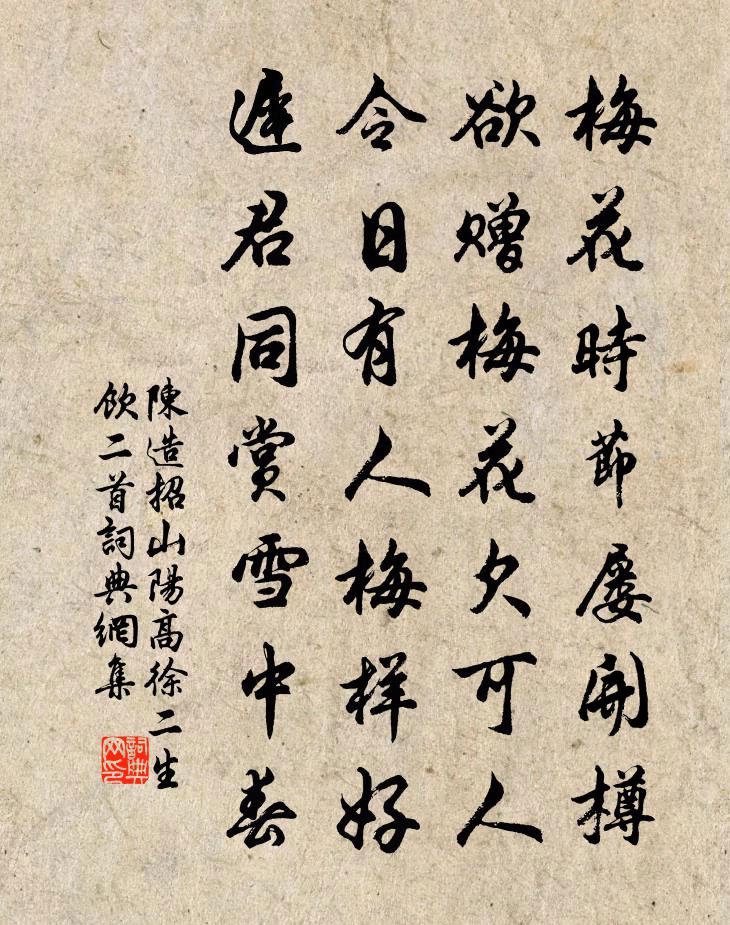 梅花時節屡開樽
欲贈梅花欠可人
今日有人梅样好
遲君同赏雪中春
陳造招山陽高徐二生
飲二首詞典網集
詞典
网印